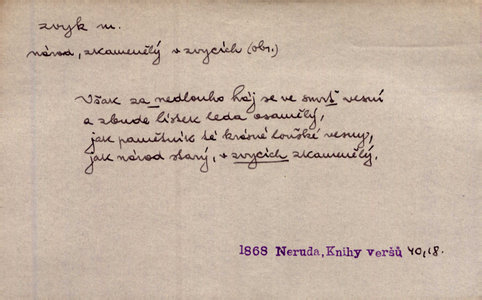 zvyk m.
národ, zkamenělý v zvycích (obr.)
Však za nedlouho háj se ve smrt vesní
a zbude lístek leda osamělý,
jak pamětník té krásné loňské vesny,
jak národ starý, v zvycích zkamenělý.
1868 Neruda, Knihy veršů 40,18.